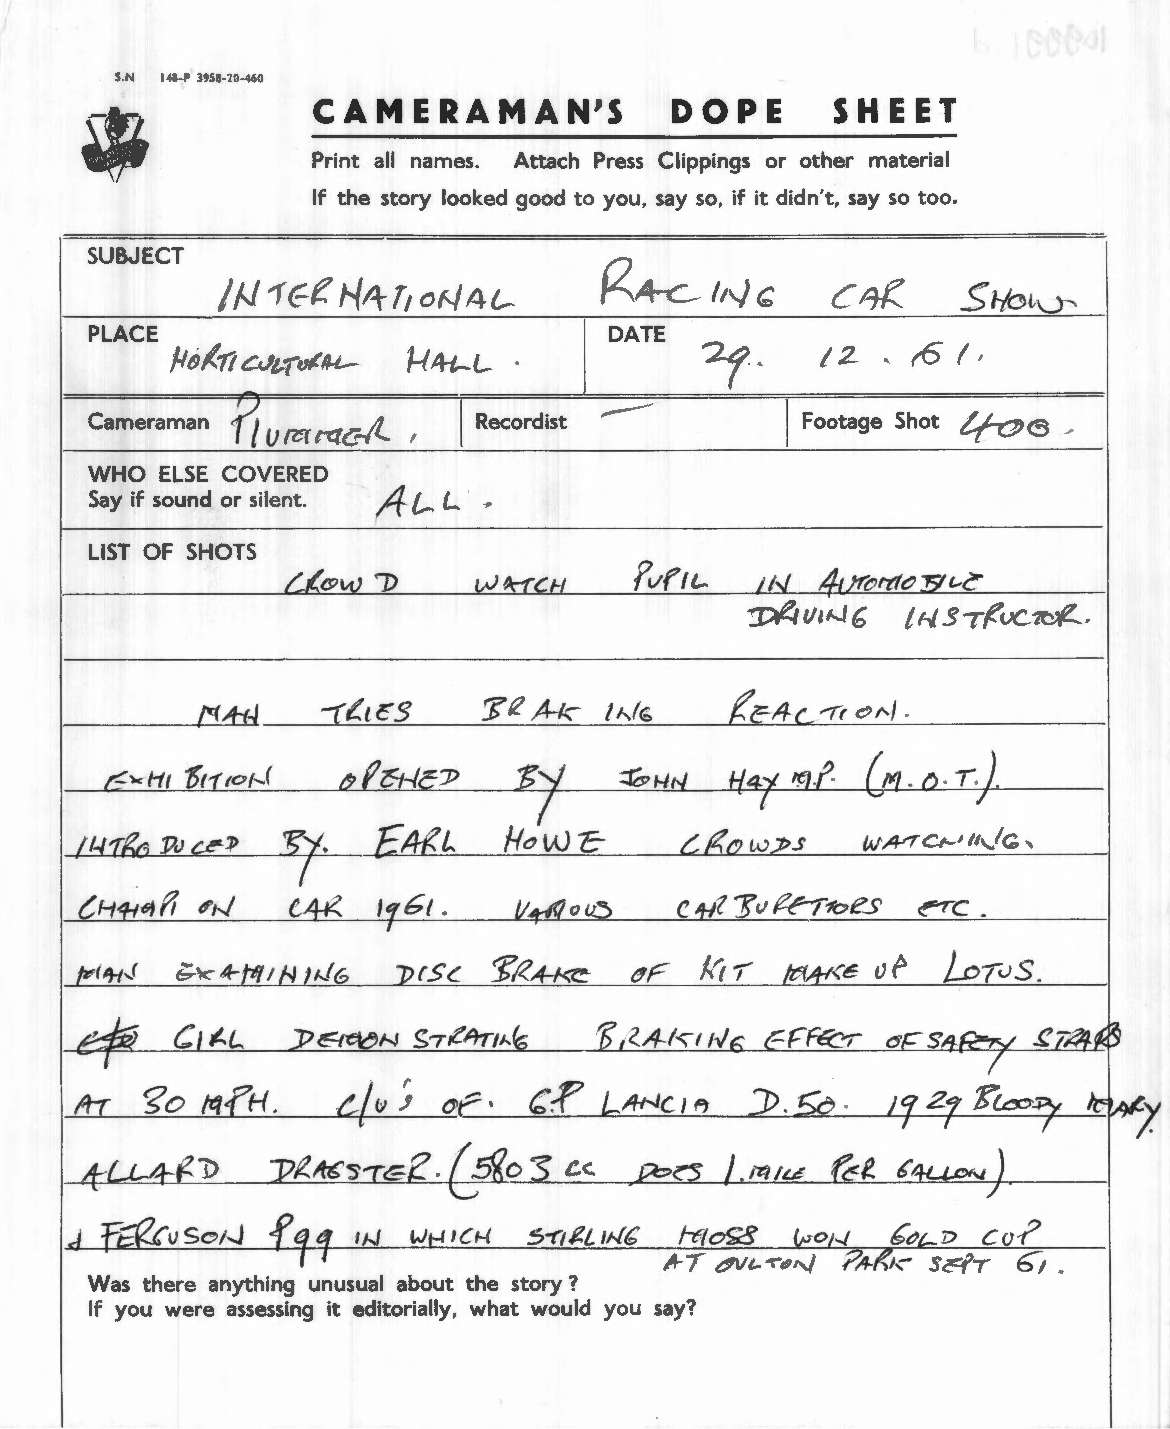 S.N 148-P 3958-20-460
CAMERAMAN'S DOPE SHEET
Print all names. Attach Press Clippings or other material
If the story looked good to you, say so, if it didn't, say so too.
SUBJECT
INTERNATIONAL RACING CAR SHOW
PLACE
HORTICULTURAL HALL.
DATE
29. 12. 61.
Cameraman Plummer.
Recordist —
Footage Shot 400.
WHO ELSE COVERED
Say if sound or silent.
ALL.
LIST OF SHOTS
CROWD WATCH PUPIL IN AUTOMOBILE
DRIVING INSTRUCTOR.
MAN TRIES BRAKING REACTION.
EXHIBITION OPENED BY JOHN HAY M.P. (M.O.T.).
INTRODUCED BY. EARL HOWE CROWDS WATCHING.
CHAMPION CAR 1961. VARIOUS CARBURETTORS ETC.
MAN EXAMINING DISC BRAKE OF KIT MAKE UP LOTUS.
GIRL DEMONSTRATING BRAKING EFFECT OF SAFETY STRAPS
AT 30 MPH. C/U'S OF. G.P LANCIA D.50. 1929 BLOODY MARY.
ALLARD DRAGSTER. (5803 CC DOES 1. MILE PER GALLON).
& FERGUSON P99 IN WHICH STIRLING MOSS WON GOLD CUP
AT OULTON PARK SEPT 61.
Was there anything unusual about the story?
If you were assessing it editorially, what would you say?